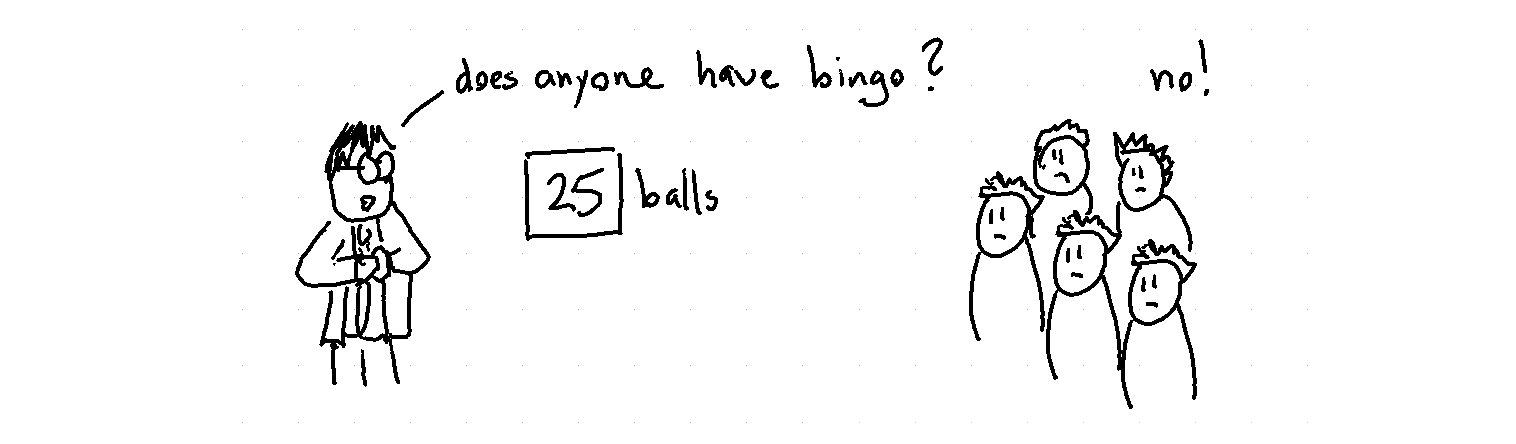 does anyone have bingo?
no!
25 balls